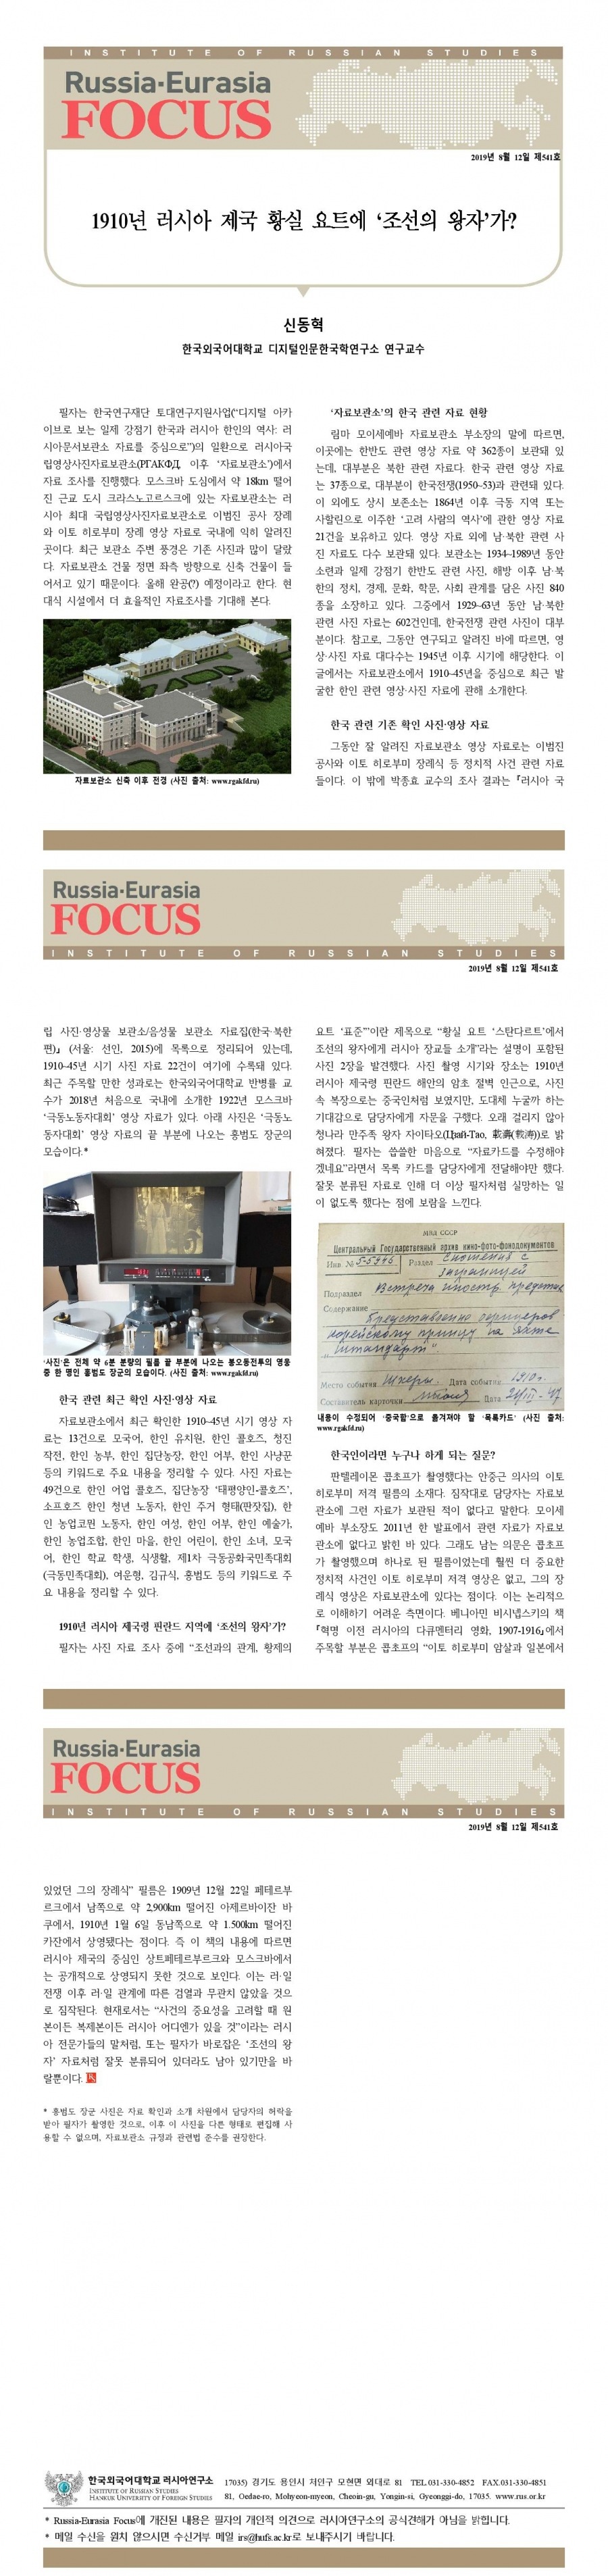 INSTITUTE OF RUSSIAN STUDIES
Russia·Eurasia
FOCUS
2019년 8월 12일 제541호
1910년 러시아 제국 황실 요트에 ‘조선의 왕자’가?
신동혁
한국외국어대학교 디지털인문한국학연구소 연구교수
필자는 한국연구재단 토대연구지원사업(“디지털 아카
이브로 보는 일제 강점기 한국과 러시아 한인의 역사: 러
시아문서보관소 자료를 중심으로”)의 일환으로 러시아국
립영상사진자료보관소(РГАКФД, 이후 ‘자료보관소’)에서
자료 조사를 진행했다. 모스크바 도심에서 약 18km 떨어
진 근교 도시 크라스노고르스크에 있는 자료보관소는 러
시아 최대 국립영상사진자료보관소로 이범진 공사 장례
와 이토 히로부미 장례 영상 자료로 국내에 익히 알려진
곳이다. 최근 보관소 주변 풍경은 기존 사진과 많이 달랐
다. 자료보관소 건물 정면 좌측 방향으로 신축 건물이 들
어서고 있기 때문이다. 올해 완공(?) 예정이라고 한다. 현
대식 시설에서 더 효율적인 자료조사를 기대해 본다.
자료보관소 신축 이후 전경 (사진 출처: www.rgakfd.ru)
‘자료보관소’의 한국 관련 자료 현황
림마 모이세예바 자료보관소 부소장의 말에 따르면,
이곳에는 한반도 관련 영상 자료 약 362종이 보관돼 있
는데, 대부분은 북한 관련 자료다. 한국 관련 영상 자료
는 37종으로, 대부분이 한국전쟁(1950–53)과 관련돼 있다.
이 외에도 상시 보존소는 1864년 이후 극동 지역 또는
사할린으로 이주한 ‘고려 사람의 역사’에 관한 영상 자료
21건을 보유하고 있다. 영상 자료 외에 남·북한 관련 사
진 자료도 다수 보관돼 있다. 보관소는 1934–1989년 동안
소련과 일제 강점기 한반도 관련 사진, 해방 이후 남·북
한의 정치, 경제, 문화, 학문, 사회 관계를 담은 사진 840
종을 소장하고 있다. 그중에서 1929–63년 동안 남·북한
관련 사진 자료는 602건인데, 한국전쟁 관련 사진이 대부
분이다. 참고로, 그동안 연구되고 알려진 바에 따르면, 영
상·사진 자료 대다수는 1945년 이후 시기에 해당한다. 이
글에서는 자료보관소에서 1910–45년을 중심으로 최근 발
굴한 한인 관련 영상·사진 자료에 관해 소개한다.
한국 관련 기존 확인 사진·영상 자료
그동안 잘 알려진 자료보관소 영상 자료로는 이범진
공사와 이토 히로부미 장례식 등 정치적 사건 관련 자료
들이다. 이 밖에 박종효 교수의 조사 결과는 『러시아 국
Russia·Eurasia
FOCUS
INSTITUTE OF RUSSIAN STUDIES
2019년 8월 12일 제541호
립 사진·영상물 보관소/음성물 보관소 자료집(한국·북한
편)』 (서울: 선인, 2015)에 목록으로 정리되어 있는데,
1910–45년 시기 사진 자료 22건이 여기에 수록돼 있다.
최근 주목할 만한 성과로는 한국외국어대학교 반병률 교
수가 2018년 처음으로 국내에 소개한 1922년 모스크바
‘극동노동자대회’ 영상 자료가 있다. 아래 사진은 ‘극동노
동자대회’ 영상 자료의 끝 부분에 나오는 홍범도 장군의
모습이다.*
‘사진’은 전체 약 6분 분량의 필름 끝 부분에 나오는 봉오동전투의 영웅
중 한 명인 홍범도 장군의 모습이다. (사진 출처: www.rgakfd.ru)
한국 관련 최근 확인 사진·영상 자료
자료보관소에서 최근 확인한 1910–45년 시기 영상 자
료는 13건으로 모국어, 한인 유치원, 한인 콜호즈, 청진
작전, 한인 농부, 한인 집단농장, 한인 어부, 한인 사냥꾼
등의 키워드로 주요 내용을 정리할 수 있다. 사진 자료는
49건으로 한인 어업 콜호즈, 집단농장 ‘태평양인-콜호즈’,
소프호즈 한인 청년 노동자, 한인 주거 형태(판잣집), 한
인 농업코뮌 노동자, 한인 여성, 한인 어부, 한인 예술가,
한인 농업조합, 한인 마을, 한인 어린이, 한인 소녀, 모국
어, 한인 학교 학생, 식생활, 제1차 극동공화국민족대회
(극동민족대회), 여운형, 김규식, 홍범도 등의 키워드로 주
요 내용을 정리할 수 있다.
1910년 러시아 제국령 핀란드 지역에 ‘조선의 왕자’가?
필자는 사진 자료 조사 중에 “조선과의 관계, 황제의
요트 ‘표준’”이란 제목으로 “황실 요트 ‘스탄다르트’에서
조선의 왕자에게 러시아 장교들 소개”라는 설명이 포함된
사진 2장을 발견했다. 사진 촬영 시기와 장소는 1910년
러시아 제국령 핀란드 해안의 암초 절벽 인근으로, 사진
속 복장으로는 중국인처럼 보였지만, 도대체 누굴까 하는
기대감으로 담당자에게 자문을 구했다. 오래 걸리지 않아
청나라 만주족 왕자 자이타오(Цзай-Тао, 載濤(載涛))로 밝
혀졌다. 필자는 씁쓸한 마음으로 “자료카드를 수정해야
겠네요”라면서 목록 카드를 담당자에게 전달해야만 했다.
잘못 분류된 자료로 인해 더 이상 필자처럼 실망하는 일
이 없도록 했다는 점에 보람을 느낀다.
МВД СССР
Центральный Государственный архив кино-фото-фонодокументов
Инв № 5-5946 Раздел Сношения с
заграницей
Подраздел Встреча иностр. представ
Содержание Представление офицеров
корейскому принцу на яхте
„Штандарт"
Место события Шхеры. Дата события 1910г.
Составитель карточки Дата 24/III-47
내용이 수정되어 ‘중국함’으로 옮겨져야 할 ‘목록카드’ (사진 출처:
www.rgakfd.ru)
한국인이라면 누구나 하게 되는 질문?
판텔레이몬 콥초프가 촬영했다는 안중근 의사의 이토
히로부미 저격 필름의 소재다. 짐작대로 담당자는 자료보
관소에 그런 자료가 보관된 적이 없다고 말한다. 모이세
예바 부소장도 2011년 한 발표에서 관련 자료가 자료보
관소에 없다고 밝힌 바 있다. 그래도 남는 의문은 콥초프
가 촬영했으며 하나로 된 필름이었는데 훨씬 더 중요한
정치적 사건인 이토 히로부미 저격 영상은 없고, 그의 장
례식 영상은 자료보관소에 있다는 점이다. 이는 논리적으
로 이해하기 어려운 측면이다. 베냐민 비시넵스키의 책
『혁명 이전 러시아의 다큐멘터리 영화, 1907-1916』에서
주목할 부분은 콥초프의 “이토 히로부미 암살과 일본에서
Russia·Eurasia
FOCUS
INSTITUTE OF RUSSIAN STUDIES
2019년 8월 12일 제541호
있었던 그의 장례식” 필름은 1909년 12월 22일 페테르부
르크에서 남쪽으로 약 2,900km 떨어진 아제르바이잔 바
쿠에서, 1910년 1월 6일 동남쪽으로 약 1.500km 떨어진
카잔에서 상영됐다는 점이다. 즉 이 책의 내용에 따르면
러시아 제국의 중심인 상트페테르부르크와 모스크바에서
는 공개적으로 상영되지 못한 것으로 보인다. 이는 러·일
전쟁 이후 러·일 관계에 따른 검열과 무관치 않았을 것으
로 짐작된다. 현재로서는 “사건의 중요성을 고려할 때 원
본이든 복제본이든 러시아 어디엔가 있을 것”이라는 러시
아 전문가들의 말처럼, 또는 필자가 바로잡은 ‘조선의 왕
자’ 자료처럼 잘못 분류되어 있더라도 남아 있기만을 바
랄뿐이다.
* 홍범도 장군 사진은 자료 확인과 소개 차원에서 담당자의 허락을
받아 필자가 촬영한 것으로, 이후 이 사진을 다른 형태로 편집해 사
용할 수 없으며, 자료보관소 규정과 관련법 준수를 권장한다.
한국외국어대학교 러시아연구소
INSTITUTE OF RUSSIAN STUDIES
HANKUK UNIVERSITY OF FOREIGN STUDIES
17035) 경기도 용인시 처인구 모현면 외대로 81 TEL.031-330-4852 FAX.031-330-4851
81, Oedae-ro, Mohyeon-myeon, Cheoin-gu, Yongin-si, Gyeonggi-do, 17035. www.rus.or.kr
* Russia-Eurasia Focus에 개진된 내용은 필자의 개인적 의견으로 러시아연구소의 공식견해가 아님을 밝힙니다.
* 메일 수신을 원치 않으시면 수신거부 메일 irs@hufs.ac.kr로 보내주시기 바랍니다.